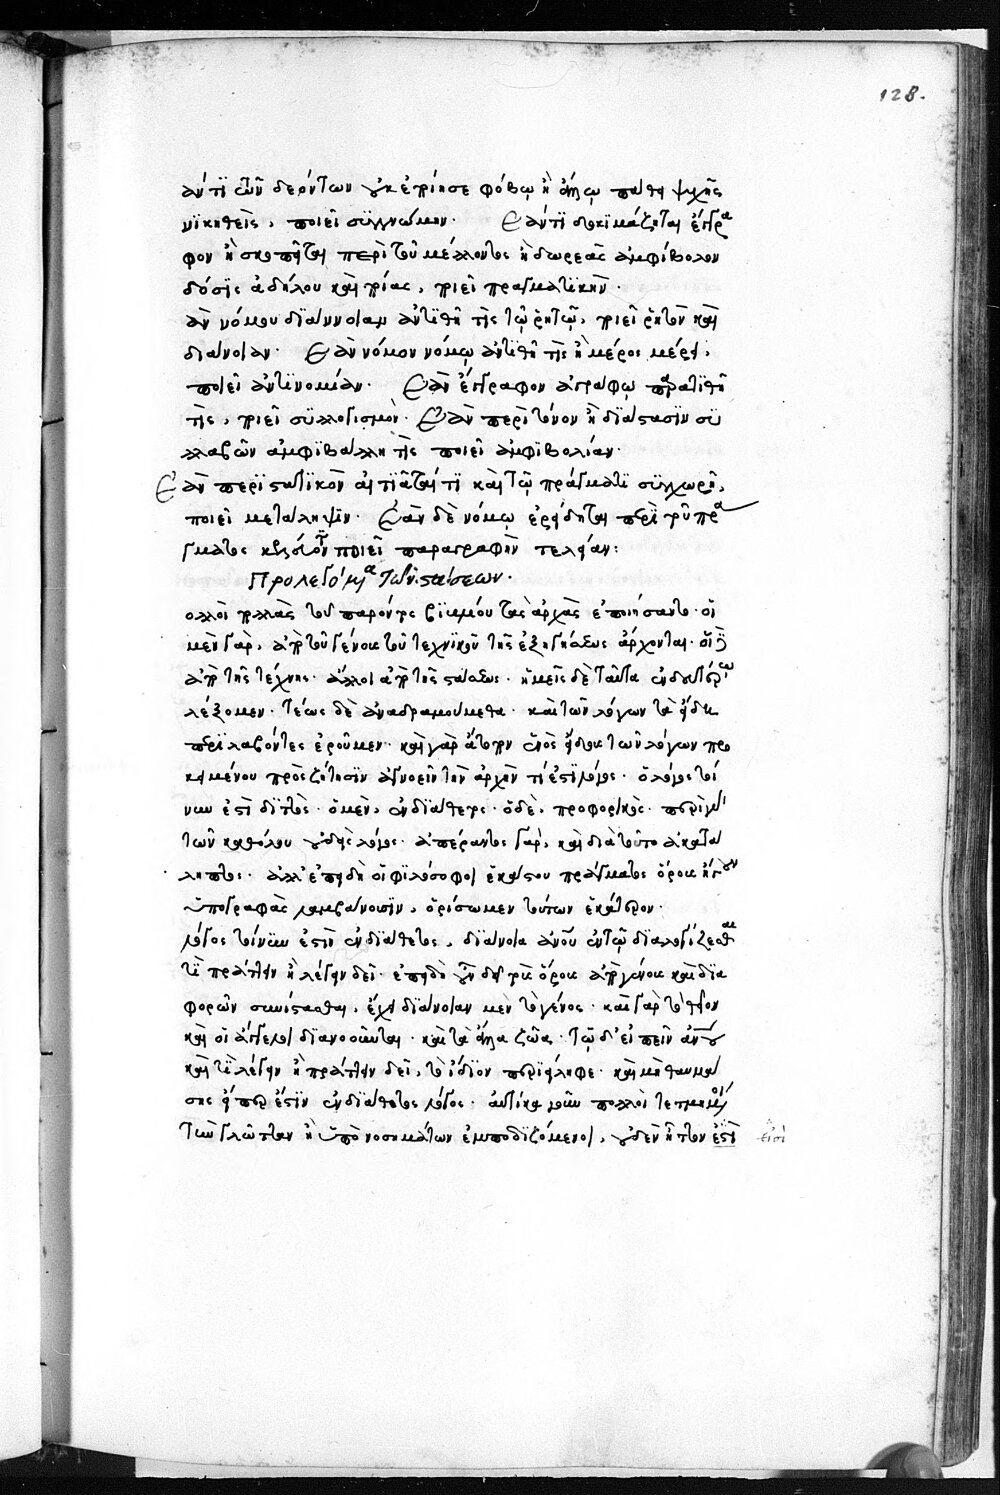 128.
ἀντὶ τῶν δεόντων οὐκ ἐποίησε φόβω ἢ ἄλλω πάθη ψυχῆς
νικηθεὶς, ποιεῖ συγγνώμην. Ἐάν τι δοκιμάζηται ἔγγρα
φον ἢ σκοπῆται περὶ τοῦ μέλλοντος ἢ δωρεᾶς ἀμφίβολον
δόσις ἀδήλου καὶ ποιεῖ πραγματικήν.
ἂν νόμου διάνοιαν ἀντιθῆ τις τῶ ῥητῶ, ποιεῖ ῥητὸν καὶ
διάνοιαν. Ἐὰν νόμον νόμω ἀντιθῆ τις ἢ μέρος μέρει,
ποιεῖ ἀντινομίαν. Ἐὰν ἔγγραφον ἀγράφω παρατιθῆ
τις, ποιεῖ συλλογισμόν. Ἐὰν περὶ τόνον ἢ διάστασιν συ
λλαβῶν ἀμφιβάλλη τις ποιεῖ ἀμφιβολίαν.
Ἐὰν περιστατικὸν αἰτιᾶταί τι καὶ τῶ πράγματι συγχωρῆ,
ποιεῖ μετάληψιν. Ἐὰν δὲ νόμω ἐρείδηται περὶ τοῦ πρά
γματος ποιεῖ παραγραφὴν τελείαν:
Προλεγόμενα τῶν στάσεων.
ολλοὶ πολλὰς τοῦ παρόντος βιβλίου τὰς ἀρχὰς ἐποιήσαντο. οἱ
μὲν γὰρ, ἀπὸ τοῦ γένους τοῦ τεχνικοῦ τῆς ἐξηγήσεως ἄρχονται. οἱ δὲ
ἀπὸ τῆς τέχνης. ἄλλοι ἀπὸ τῆς στάσεως. ἡμεῖς δὲ ταῦτα ἐν δευτέρω
λέξομεν. τέως δὲ ἀναδραμούμεθα. καὶ τῶν λόγων τὰ εἴδη
περιλαβόντες ἐροῦμεν. καὶ γὰρ ἄτοπον ἑνὸς εἴδους τῶν λόγων προ
κειμένου πρὸς ζήτησιν ἀγνοεῖν τὴν ἀρχὴν τί ἐστι λόγος. ὁ λόγος τοί
νυν ἐστὶ διττὸς. ὁ μὲν, ἐνδιάθετος. ὁ δὲ, προφορικὸς. περὶ μὲν
τῶν καθόλου οὐδεὶς λόγος. ἀπέραντος γὰρ, καὶ διὰ τοῦτο ἀκατά
ληπτος. ἀλλ' ἐπειδὴ οἱ φιλόσοφοι ἑκάστου πράγματος ὅρους ἤγουν
ὑπογραφὰς λαμβάνουσιν, ὁρίσωμεν τούτων ἑκάτερον.
λόγος τοίνυν ἐστὶ ἐνδιάθετος, διάνοια ἀνου ἐν τῶ διαλογίζεσθαι
τί πράττειν ἢ λέγειν δεῖ. ἐπειδὴ οὖν δεῖ τοὺς ὅρους ἀπὸ γένους καὶ δια
φορῶν συνίστασθαι, ἔχει διάνοιαν μὲν τὸ γένος. καὶ γὰρ τὸ θεῖον
καὶ οἱ ἄγγελοι διανοοῦνται. καὶ τὰ ἄλλα ζῶα. τῶ δ' εἰπεῖν ἀνου
καὶ τί λέγειν ἢ πράττειν δεῖ, τὸ ἴδιον περιείληφε. καὶ μὴ θαυμά
σης εἴπερ ἐστὶν ἐνδιάθετος λόγος. αὐτίκα γοῦν πολλοὶ τετμημένοι
τὴν γλῶτταν ἢ ὑπὸ νοσημάτων ἐμποδιζόμενοι, οὐδὲν ἧττον ἐστὶ εἰσὶ